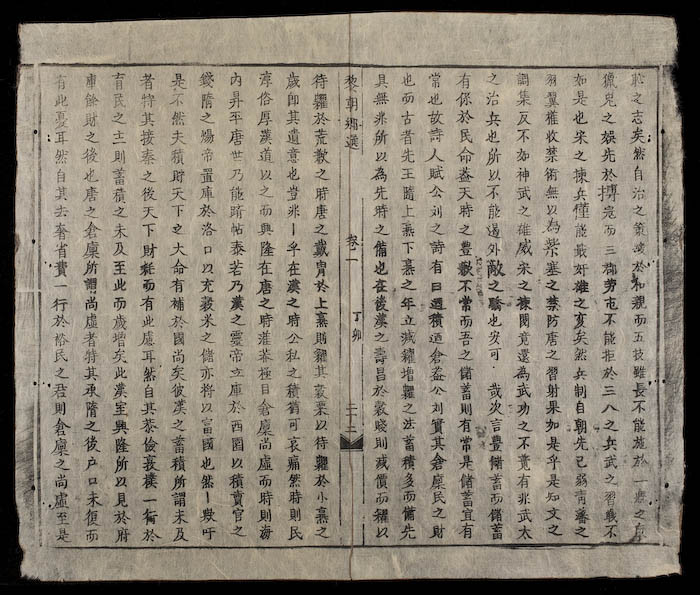 耻之志矣然自治之策疎於和親而五技雖長不能施於患之有
獵兒之娛先於搏寇而三郡勞屯不能拒於三八之兵武之習戰不
如是也宋之揀兵僅能嚴奸雄之変矣然兵制自朝先已弱靑蕃之
羽翼權收禁術無以為柴塞之禁防唐之習射果如是乎是知文之
調集反不如神武之雄威宋之揀閱竟還為武功之不竟有非武太
之治兵也所以不能遏外敵之驕也安可 或次言豊儲蓄而儲蓄
有係於民命蓋天時之豊歉不常而吾之儲蓄則有常是儲蓄宜有
常也故詩人賦公刘之詩有曰廼積廼倉盖公刘實其倉廩民之財
也而古者先王隨上熹下熹之年立减糴增糶之法蓄積多而備先
具無非所以為先時之備也在後漢之壽昌於穀賤則减價而糴以
黎朝鄉選 卷二 丁卯 二十二
待糶於荒歉之時唐之戴冑於上熹則糴其穀粟以待糶於小熹之
歲即其遺意也豈非一乎在漢之時公私之積猶可哀痛然時則民
淳俗厚漢道以之而興隆在唐之時淮極目倉廩尚虛而時則海
內昇平唐世乃能躋帖泰若乃漢之靈帝立庫於西園以積賣官之
錢隋之煬帝置庫於洛口以充穀米之儲亦將以富國也然一歎吁
是不然夫積貯天下之大命有補於國尚矣彼漢之蓄積所謂未及
者特其接秦之後天下財耗而有此慮耳然自其恭儉樸一行於
育民之主則蓄積之未及至此而歲增矣此漢室興隆所以見於府
庫餘財之後也唐之倉廩所謂尚虛者特其承隋之後户口未復而
有此憂耳然自其去奢省費一行於裕民之君則倉廩之尚虛至是